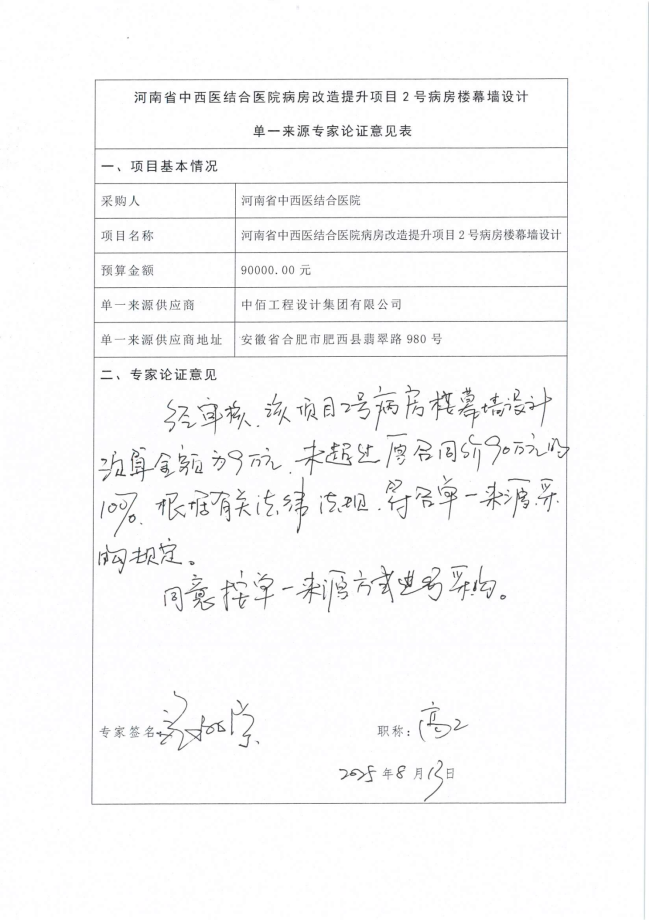 河南省中西医结合医院病房改造提升项目2号病房楼幕墙设计
单一来源专家论证意见表
一、项目基本情况
采购人 河南省中西医结合医院
项目名称 河南省中西医结合医院病房改造提升项目2号病房楼幕墙设计
预算金额 90000.00 元
单一来源供应商 中佰工程设计集团有限公司
单一来源供应商地址 安徽省合肥市肥西县翡翠路 980 号
二、专家论证意见
经审核,该项目2号病房楼幕墙设计
预算金额为9万元,未超过原合同价90万元的
10%,根据有关法律法规,符合单一来源采
购规定。
同意按单一来源方式进行采购。
专家签名: 职称:高工
2025 年 8 月 13 日